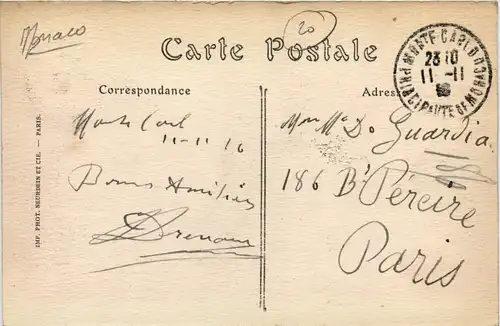 Monaco
20
Carte Postale
Correspondance
Adresse
MONTE-CARLO
PRINCIPAUTE DE MONACO
23 10
11 -11
Monte Carl
11-11 16
Bonnes Amitiés
Mme De Guardia
186 Bd Péreire
Paris
IMP. PHOT. NEURDEIN ET CIE. — PARIS.